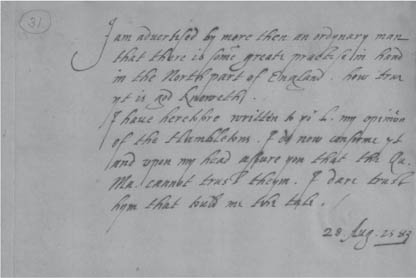 31
I am advertised by more then an ordynary man
that there is some greate practise in hand
in the North part of England. how true
yt is god knoweth.
I have heretofore written to yor L. my opinion
of the Humbletons. I do now confirme yt
and upon my head assure you that the Qu.
Ma. cannot trust theym. I dare trust
hym that tould me this tale.
28. Aug. 1583